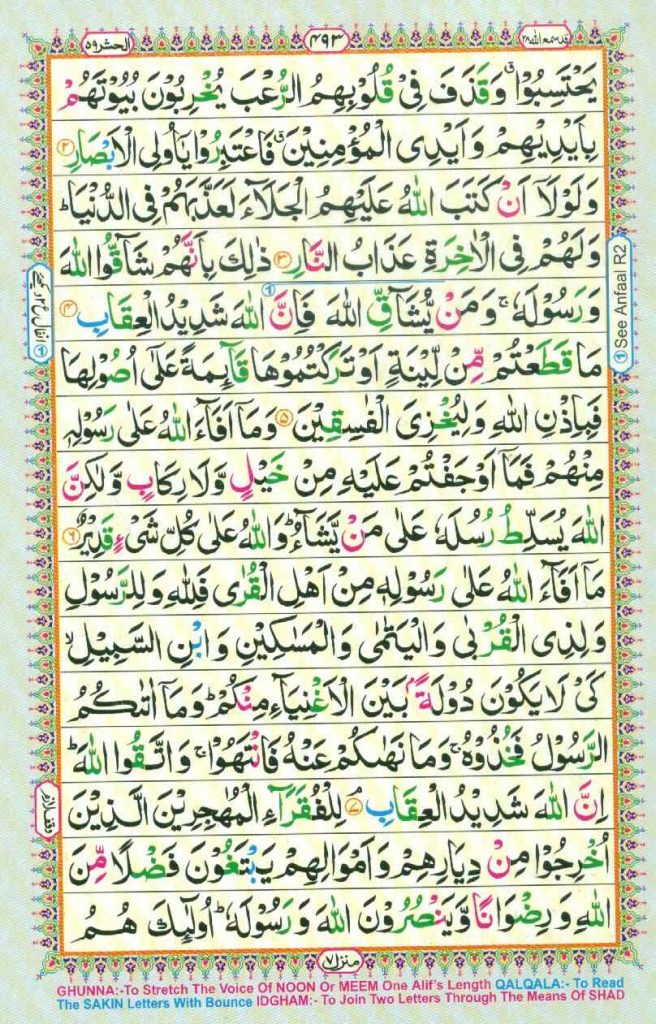 قدسمع اللّٰه ۲۸
۴۹۳
الحشر ۵۹
يَحْتَسِبُوْا ۗ وَقَذَفَ فِيْ قُلُوْبِهِمُ الرُّعْبَ يُخْرِبُوْنَ بُيُوْتَهُمْ
بِاَيْدِيْهِمْ وَاَيْدِي الْمُؤْمِنِيْنَ ۗ فَاعْتَبِرُوْا يٰٓاُولِي الْاَبْصَارِ ۝۲
وَلَوْلَآ اَنْ كَتَبَ اللّٰهُ عَلَيْهِمُ الْجَلَآءَ لَعَذَّبَهُمْ فِي الدُّنْيَا ؕ
وَلَهُمْ فِي الْاٰخِرَةِ عَذَابُ النَّارِ ۝۳ ذٰلِكَ بِاَنَّهُمْ شَآقُّوا اللّٰهَ
وَرَسُوْلَهٗ ۚ وَمَنْ يُّشَآقِّ اللّٰهَ فَاِنَّ اللّٰهَ شَدِيْدُ الْعِقَابِ ۝۴
مَا قَطَعْتُمْ مِّنْ لِّيْنَةٍ اَوْ تَرَكْتُمُوْهَا قَآئِمَةً عَلٰٓى اُصُوْلِهَا
فَبِاِذْنِ اللّٰهِ وَلِيُخْزِيَ الْفٰسِقِيْنَ ۝۵ وَمَآ اَفَآءَ اللّٰهُ عَلٰى رَسُوْلِهٖ
مِنْهُمْ فَمَآ اَوْجَفْتُمْ عَلَيْهِ مِنْ خَيْلٍ وَّلَا رِكَابٍ وَّلٰكِنَّ
اللّٰهَ يُسَلِّطُ رُسُلَهٗ عَلٰى مَنْ يَّشَآءُ ؕ وَاللّٰهُ عَلٰى كُلِّ شَيْءٍ قَدِيْرٌ ۝۶
مَآ اَفَآءَ اللّٰهُ عَلٰى رَسُوْلِهٖ مِنْ اَهْلِ الْقُرٰى فَلِلّٰهِ وَلِلرَّسُوْلِ
وَلِذِي الْقُرْبٰى وَالْيَتٰمٰى وَالْمَسٰكِيْنِ وَابْنِ السَّبِيْلِ ۙ
كَيْ لَا يَكُوْنَ دُوْلَةًۢ بَيْنَ الْاَغْنِيَآءِ مِنْكُمْ ؕ وَمَآ اٰتٰىكُمُ
الرَّسُوْلُ فَخُذُوْهُ ۚ وَمَا نَهٰىكُمْ عَنْهُ فَانْتَهُوْا ۚ وَاتَّقُوا اللّٰهَ ؕ
اِنَّ اللّٰهَ شَدِيْدُ الْعِقَابِ ۝۷ لِلْفُقَرَآءِ الْمُهٰجِرِيْنَ الَّذِيْنَ
اُخْرِجُوْا مِنْ دِيَارِهِمْ وَاَمْوَالِهِمْ يَبْتَغُوْنَ فَضْلًا مِّنَ
اللّٰهِ وَرِضْوَانًا وَّيَنْصُرُوْنَ اللّٰهَ وَرَسُوْلَهٗ ؕ اُولٰٓئِكَ هُمُ
① See Anfaal R2
وقف لازم
منزل ۷
GHUNNA:-To Stretch The Voice Of NOON Or MEEM One Alif's Length QALQALA:- To Read
The SAKIN Letters With Bounce IDGHAM:- To Join Two Letters Through The Means Of SHAD